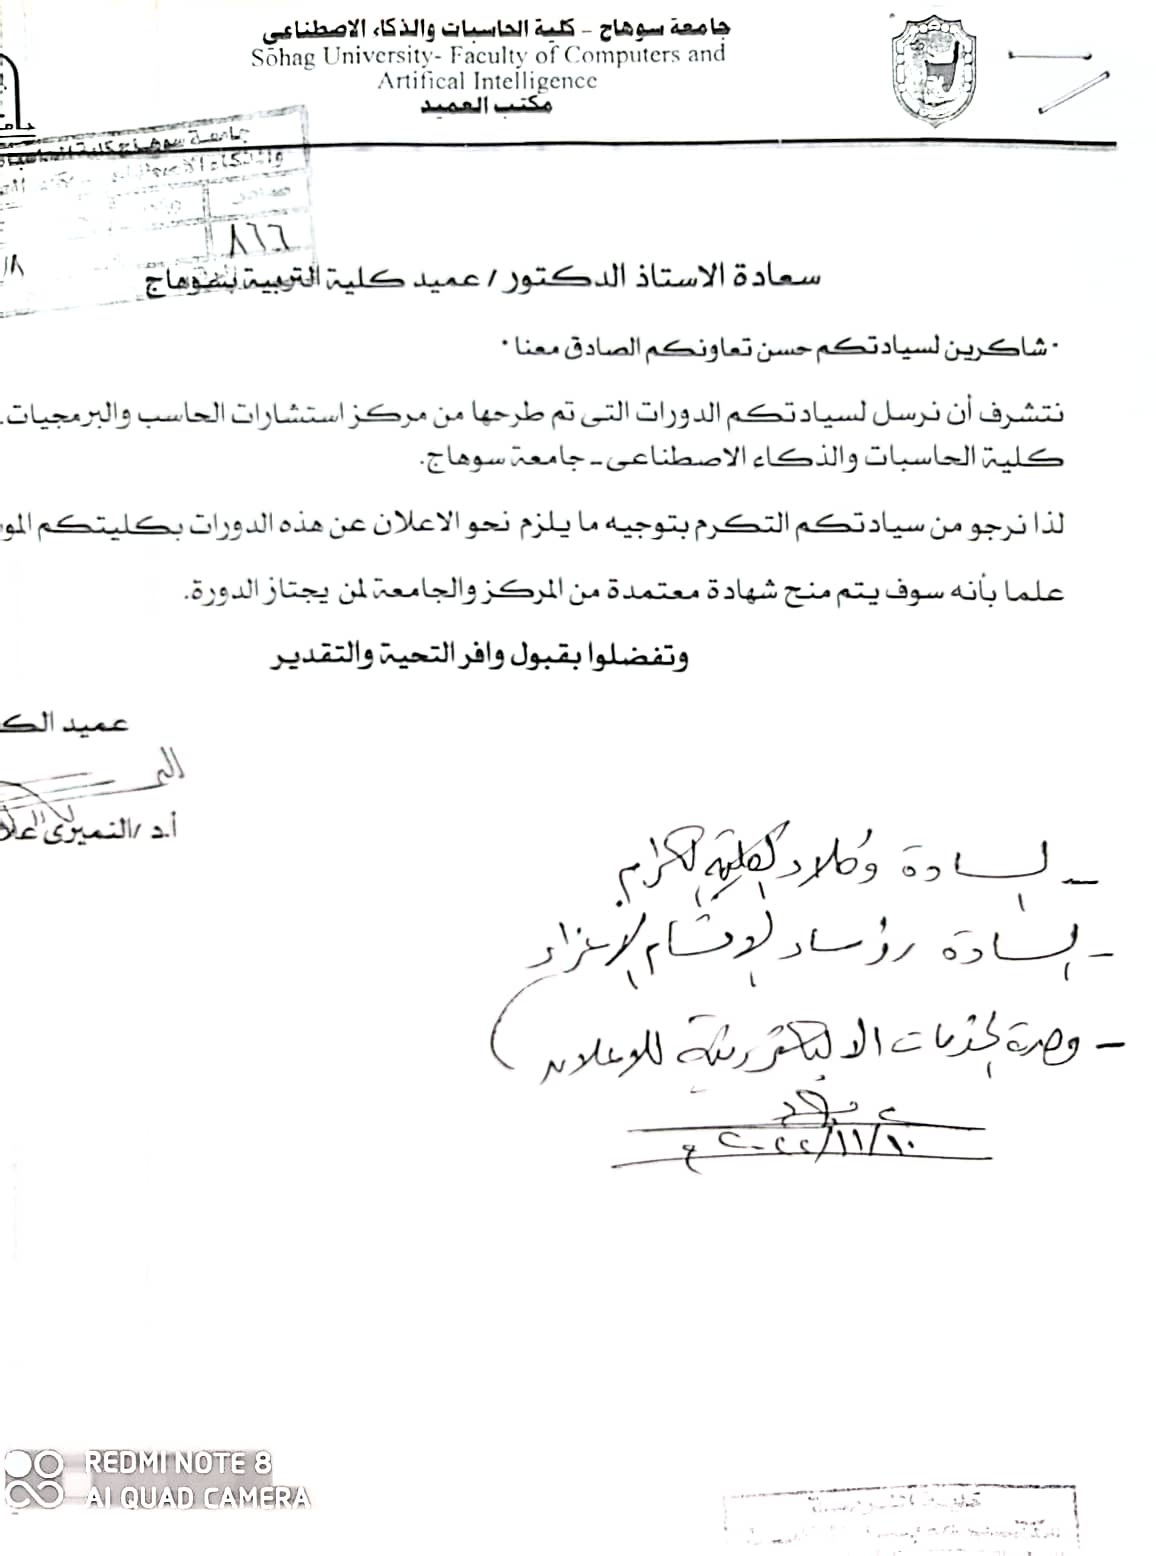 جامعة سوهاج - كلية الحاسبات والذكاء الاصطناعى
Sohag University- Faculty of Computers and
Artifical Intelligence
مكتب العميد
جامعة سوهاج كلية الحاسبات
والذكاء
صادر
٨٦٦
سعادة الاستاذ الدكتور / عميد كلية التربية بسوهاج
شاكرين لسيادتكم حسن تعاونكم الصادق معنا
نتشرف أن نرسل لسيادتكم الدورات التى تم طرحها من مركز استشارات الحاسب والبرمجيات.
كلية الحاسبات والذكاء الاصطناعى - جامعة سوهاج.
لذا نرجو من سيادتكم التكرم بتوجيه ما يلزم نحو الاعلان عن هذه الدورات بكليتكم
علما بأنه سوف يتم منح شهادة معتمدة من المركز والجامعة لمن يجتاز الدورة.
وتفضلوا بقبول وافر التحية والتقدير
عميد
أ.د /النميرى
- السادة وكلاء الكلية الكرام
- السادة رؤساء الأقسام الأعزاء
- وحدة الخدمات الالكترونية للاعلان
٢٠٢٢/١١/١٠ م
REDMI NOTE 8
AI QUAD CAMERA